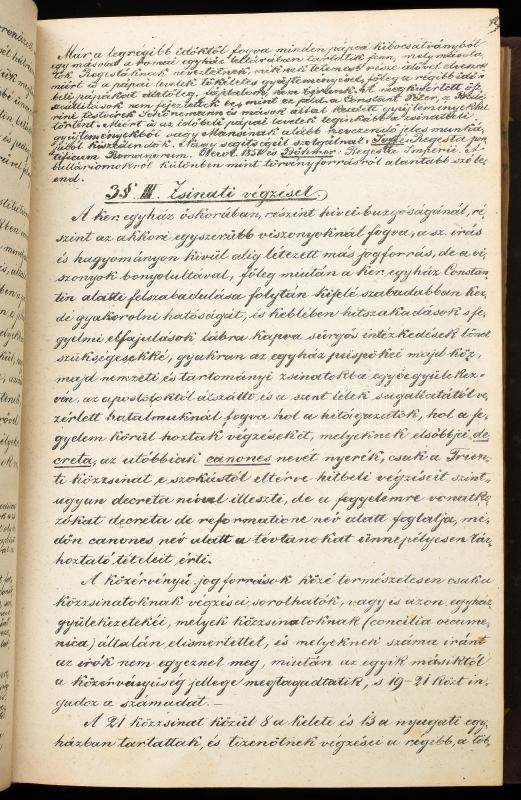 Már a legrégibb időktől fogva minden pápai kibocsátványból
egy másolat a romai egyház levéltárában tartatik fenn, mely másola-
tok Regestáknak neveztetnek, miknek tetemes része idővel elveszett,
miért is a pápai levelek tökéletes gyűjteményével, főleg a régibb idő-
beli pápákat illetőleg, sajnálom, nem birunk. Az e megkisértett ösz-
szeállitások nem fejeztettek be, mint ez péld. a Constant Péter, a Balle-
rini testvérek Schönemann és mások által kiadott gyűjteményekkel
történt. Miért is az okori pápai levelek leginkább a zsinatbeli
gyűjteményekből vagy Mansinak alább nevezendő jeles munká-
jából kiszedendők. Nagy segitségül szolgálnak: Jaffé: Regesta pon-
tificum Romanorum. Berol. 1851 és Böhmer: Regesta Imperii. A
bulláriomokról különben mint törvényforrásról alantabb szó le-
end.
3§ III. Zsinati végzések.
A ker. egyház őskorában, részint hivei buzgóságánál, ré-
szint az akkori egyszerübb viszonyoknál fogva, a sz. irás
és hagyományon kivül alig létezett mas jogforrás, de a vi-
szonyok bonyolultával, főleg miután a ker. egyház Constan-
tin alatti felszabadulása folytán kifelé szabadabban kez-
dé gyakorolni hatóságát, és keblében hitszakadások s fe-
gyelmi elfajulások lábra kapva sürgős intézkedések lőnek
szükségesekké, gyakran az egyház püspökei majd köz,
majd nemzeti és tartományi zsinatokba egybegyülekez-
vén, az apostoloktól átszállt és a szent lélek sugallatától ve-
zérlett hatalmuknál fogva hol a hitágazatok, hol a fe-
gyelem körül hoztak végzéseket, melyeknek elsőbbjei de
creta, az utóbbiak canones nevet nyerék, csak a Trien-
ti közzsinat e szokástól eltérve hitbeli végzéseit szint-
ugyan decreta névvel illeszti, de a fegyelemre vonatko-
zókat decreta de reformatione név alatt foglalja, mi-
dőn canones név alatt a tévtanokat ünnepélyesen kár-
hoztató tételeit érti.
A közérvényű jogforrások közé természetesen csak a
közzsinatoknak végzései sorolhatók, vagy is azon egyház
gyülekezetekéi, melyek közzsinatoknak (concilia oecume-
nica) általán elismertettek, és melyeknek száma iránt
az irók nem egyeznek meg, miután az egyik másiktól
a közérvényüség jellege megtagadtatik, s 19-21 közt in-
gadoz a számadat. –
A 21 közzsinat közül 8 a keleti és 13 a nyugati egy-
házban tartattak, és tizenötnek végzései a régibb, a töb